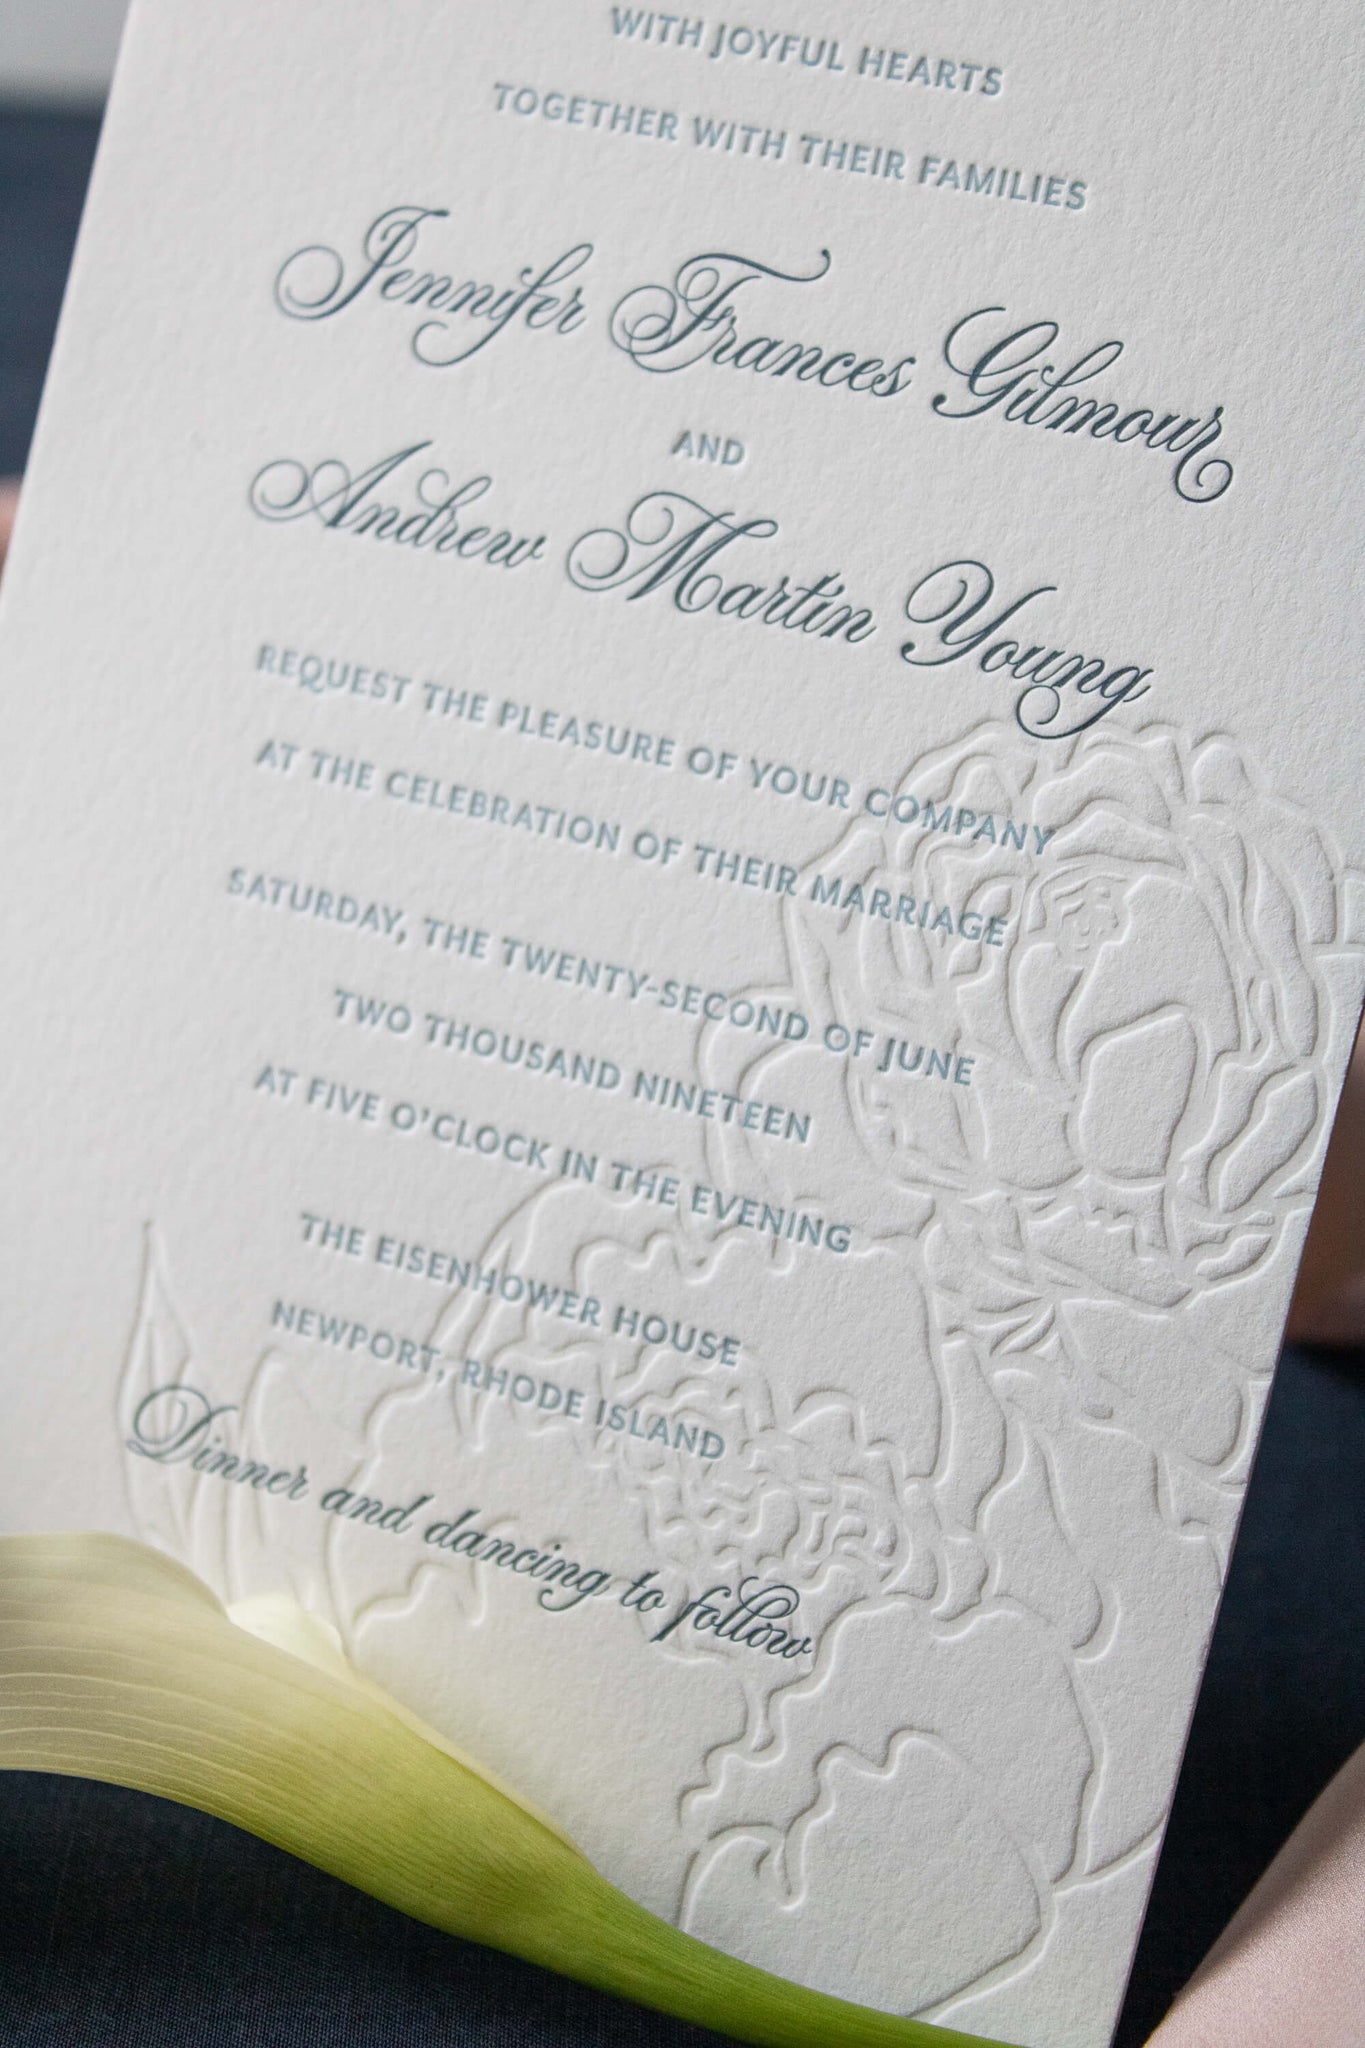 WITH JOYFUL HEARTS
TOGETHER WITH THEIR FAMILIES
Jennifer Frances Gilmour
AND
Andrew Martin Young
REQUEST THE PLEASURE OF YOUR COMPANY
AT THE CELEBRATION OF THEIR MARRIAGE
SATURDAY, THE TWENTY-SECOND OF JUNE
TWO THOUSAND NINETEEN
AT FIVE O'CLOCK IN THE EVENING
THE EISENHOWER HOUSE
NEWPORT, RHODE ISLAND
Dinner and dancing to follow